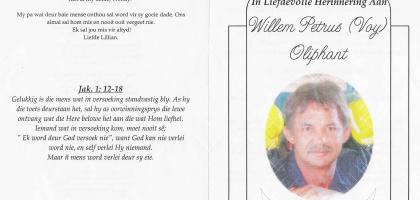 My pa wat deur bate mense onthou sal word vir sy goeie dade. Ons
almal sal hom mis en nooit ooit vergeet nie.
Ek sal jou mis vir altyd!
Liefde Lillian.
Jak. 1: 12-18
Gelukkig is die mens wat in versoeking standvastig bly. As hy
die toets deurstaan het, sal hy as oorwinningsprys die lewe
ontvang wat die Here belowe het aan die wat Hom liefhet.
Iemand wat in versoeking kom, moet nooit sê;
" Ek word deur God versoek nie", want God kan nie verlei
word nie, en self verlei Hy niemand.
Maar ŉ mens word verlei deur sy eie.
In Liefdevolle Herinnering Aan
Willem Petrus (Voy)
Oliphant